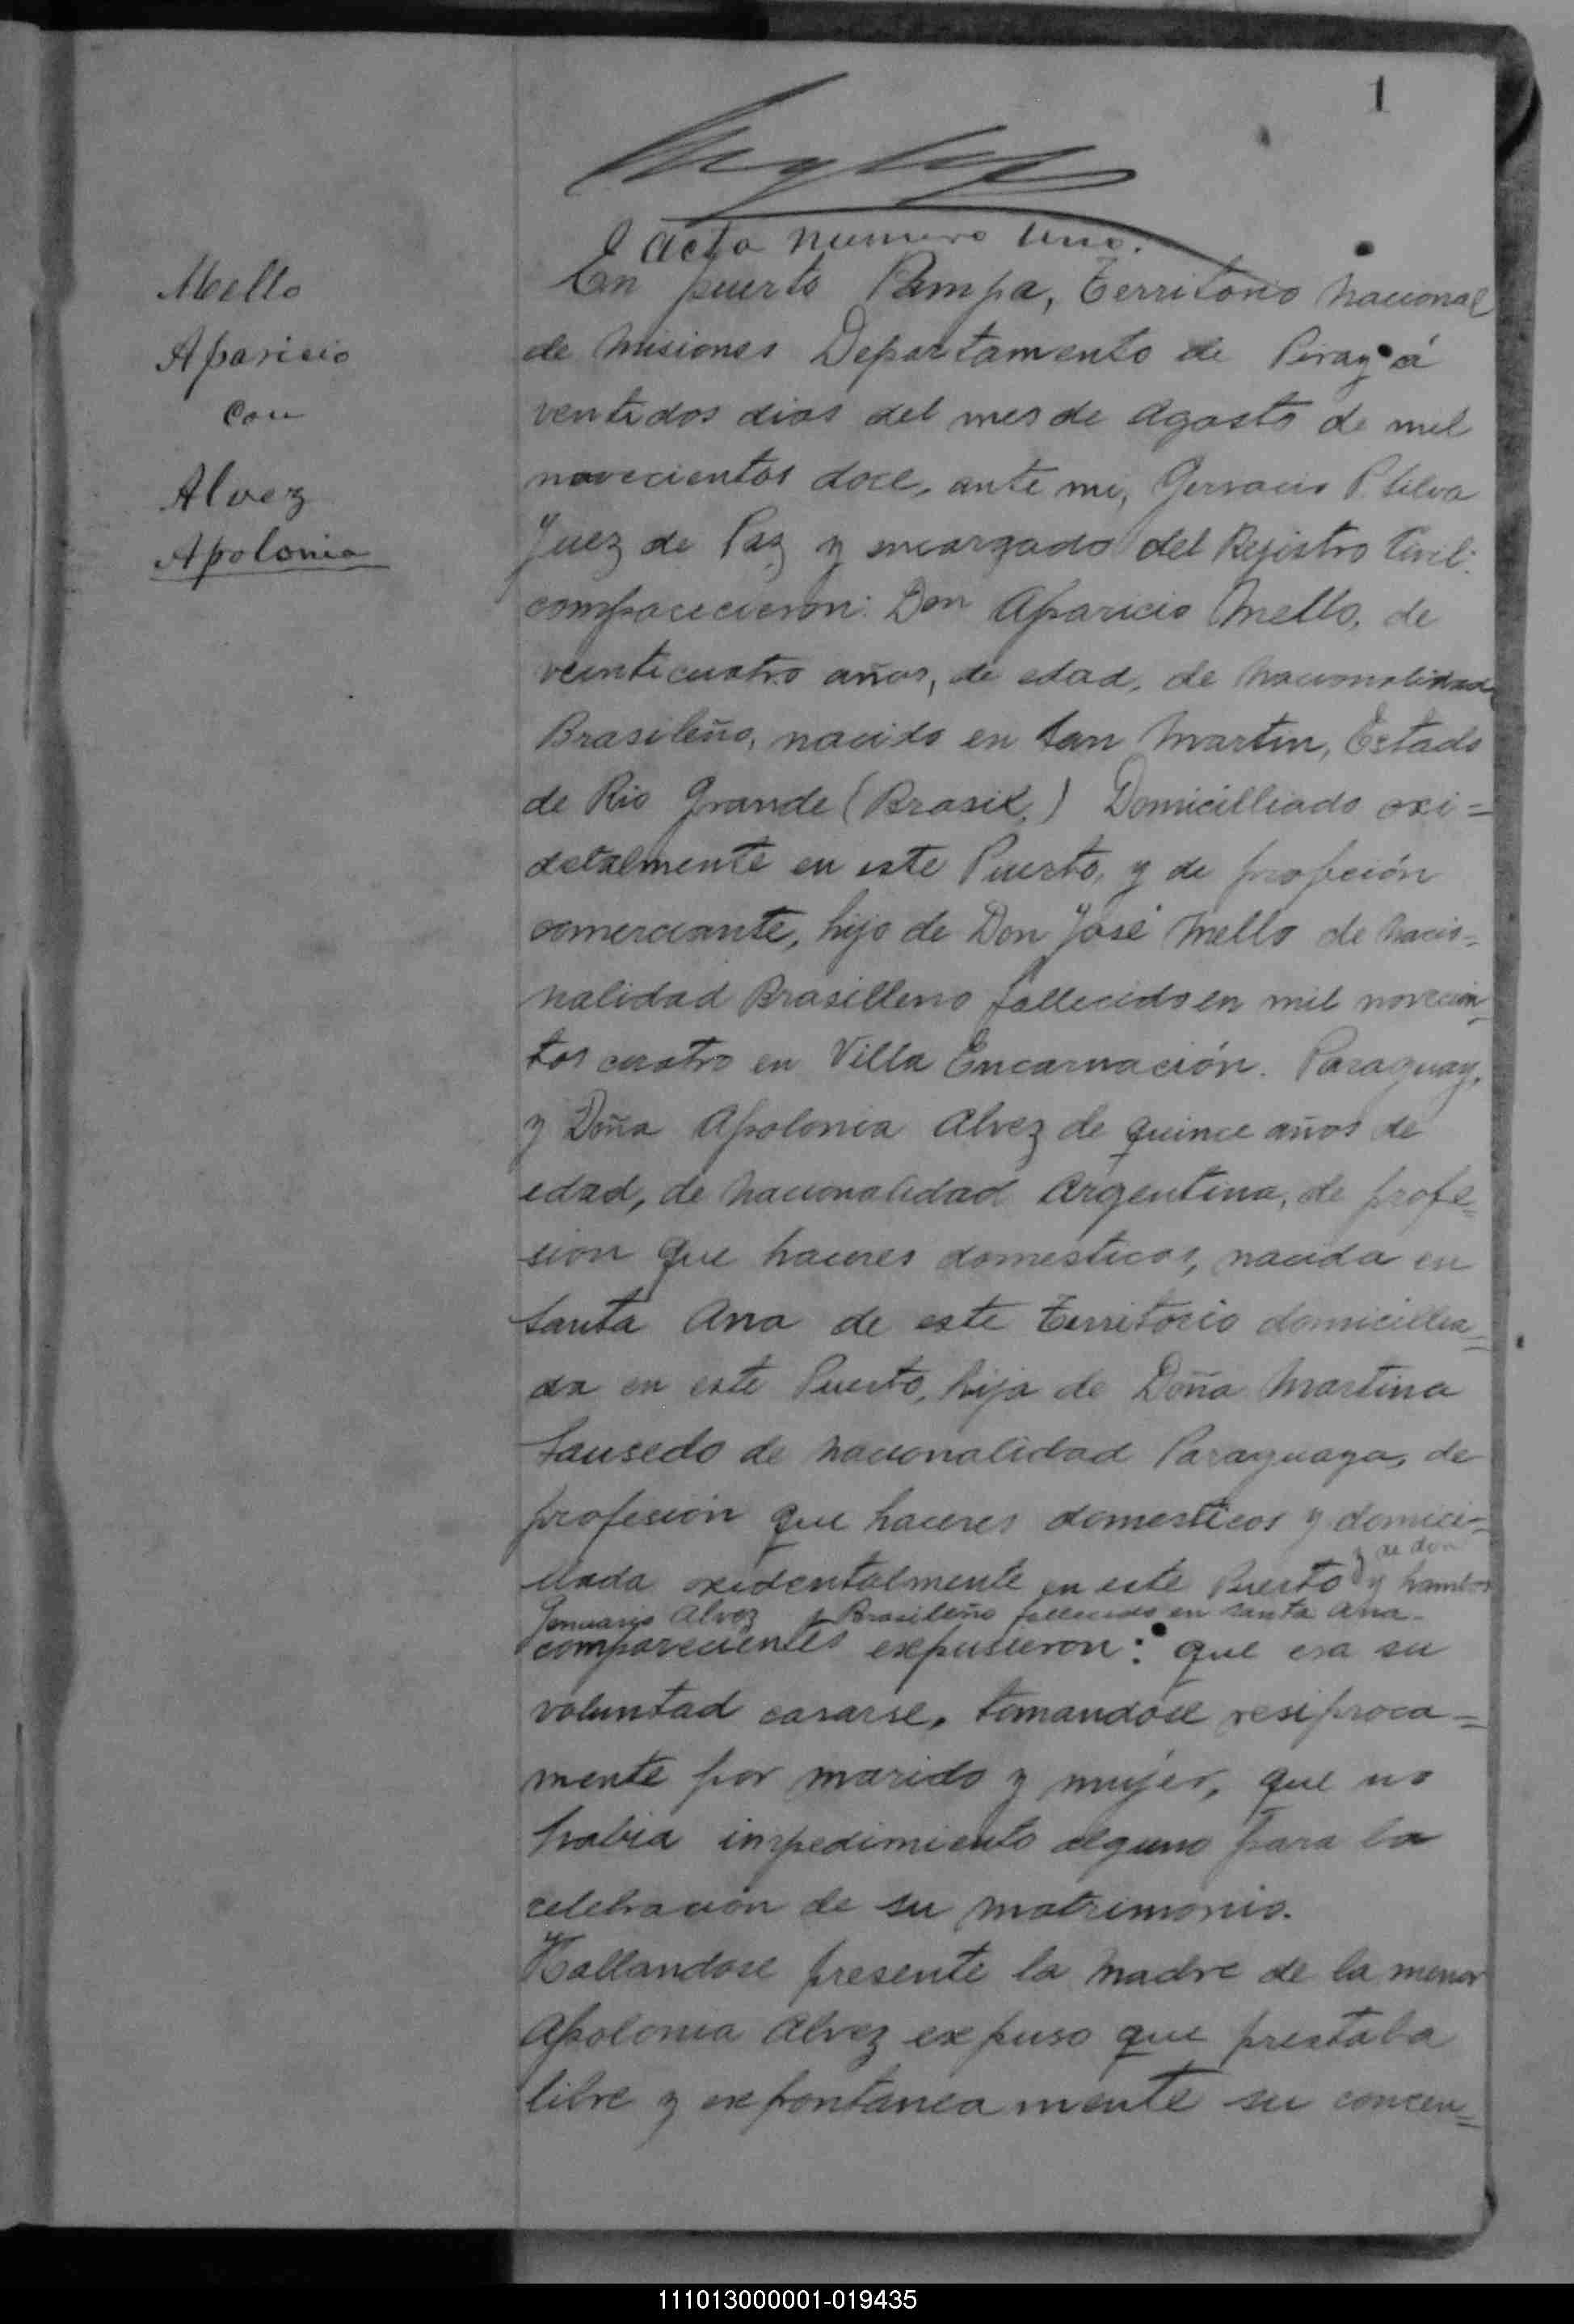 1
Acta numero Uno.
Mello
Aparicio
con
Alvez
Apolonia
En puerto Pampa, Territorio Nacional
de Misiones Departamento de Piray á
ventidos dias del mes de Agosto de mil
novecientos doce, ante mi, Gervacio P. Silva
Juez de Paz y encargado del Rejistro Civil:
comparecieron: Don Aparicio Mello, de
veinticuatro años, de edad, de nacionalidad
Brasileño, nacido en San Martin, Estado
de Rio Grande (Brasil,) Domicilliado oxi=
detalmente en este Puerto, y de profeción
comerciante, hijo de Don José Mello de nacio=
nalidad Brasilleno fallecido en mil novecien=
tos cuatro en Villa Encarnación. Paraguay,
y Doña Apolonia Alvez de quince años de
edad, de nacionalidad Argentina, de profe=
sion que haceres domesticos, nacida en
Santa Ana de este Territorio domicillia=
da en este Puerto, hija de Doña Martina
Sausedo de nacionalidad Paraguaya, de
profesión que haceres domesticos y domici=
y de don
liada oxidentalmente en este Puerto y hambos
Jenuario Alvez Brasileño fallecido en Santa Ana-
comparecientes expusieron: que era su
voluntad casarse, tomandose resiproca=
mente por marido y mujer, que no
habia impedimiento alguno para la
celebración de su matrimonio.
Hallandose presente la Madre de la menor
Apolonia Alvez expuso que prestaba
libre y expontanea mente su concen=
111013000001-019435